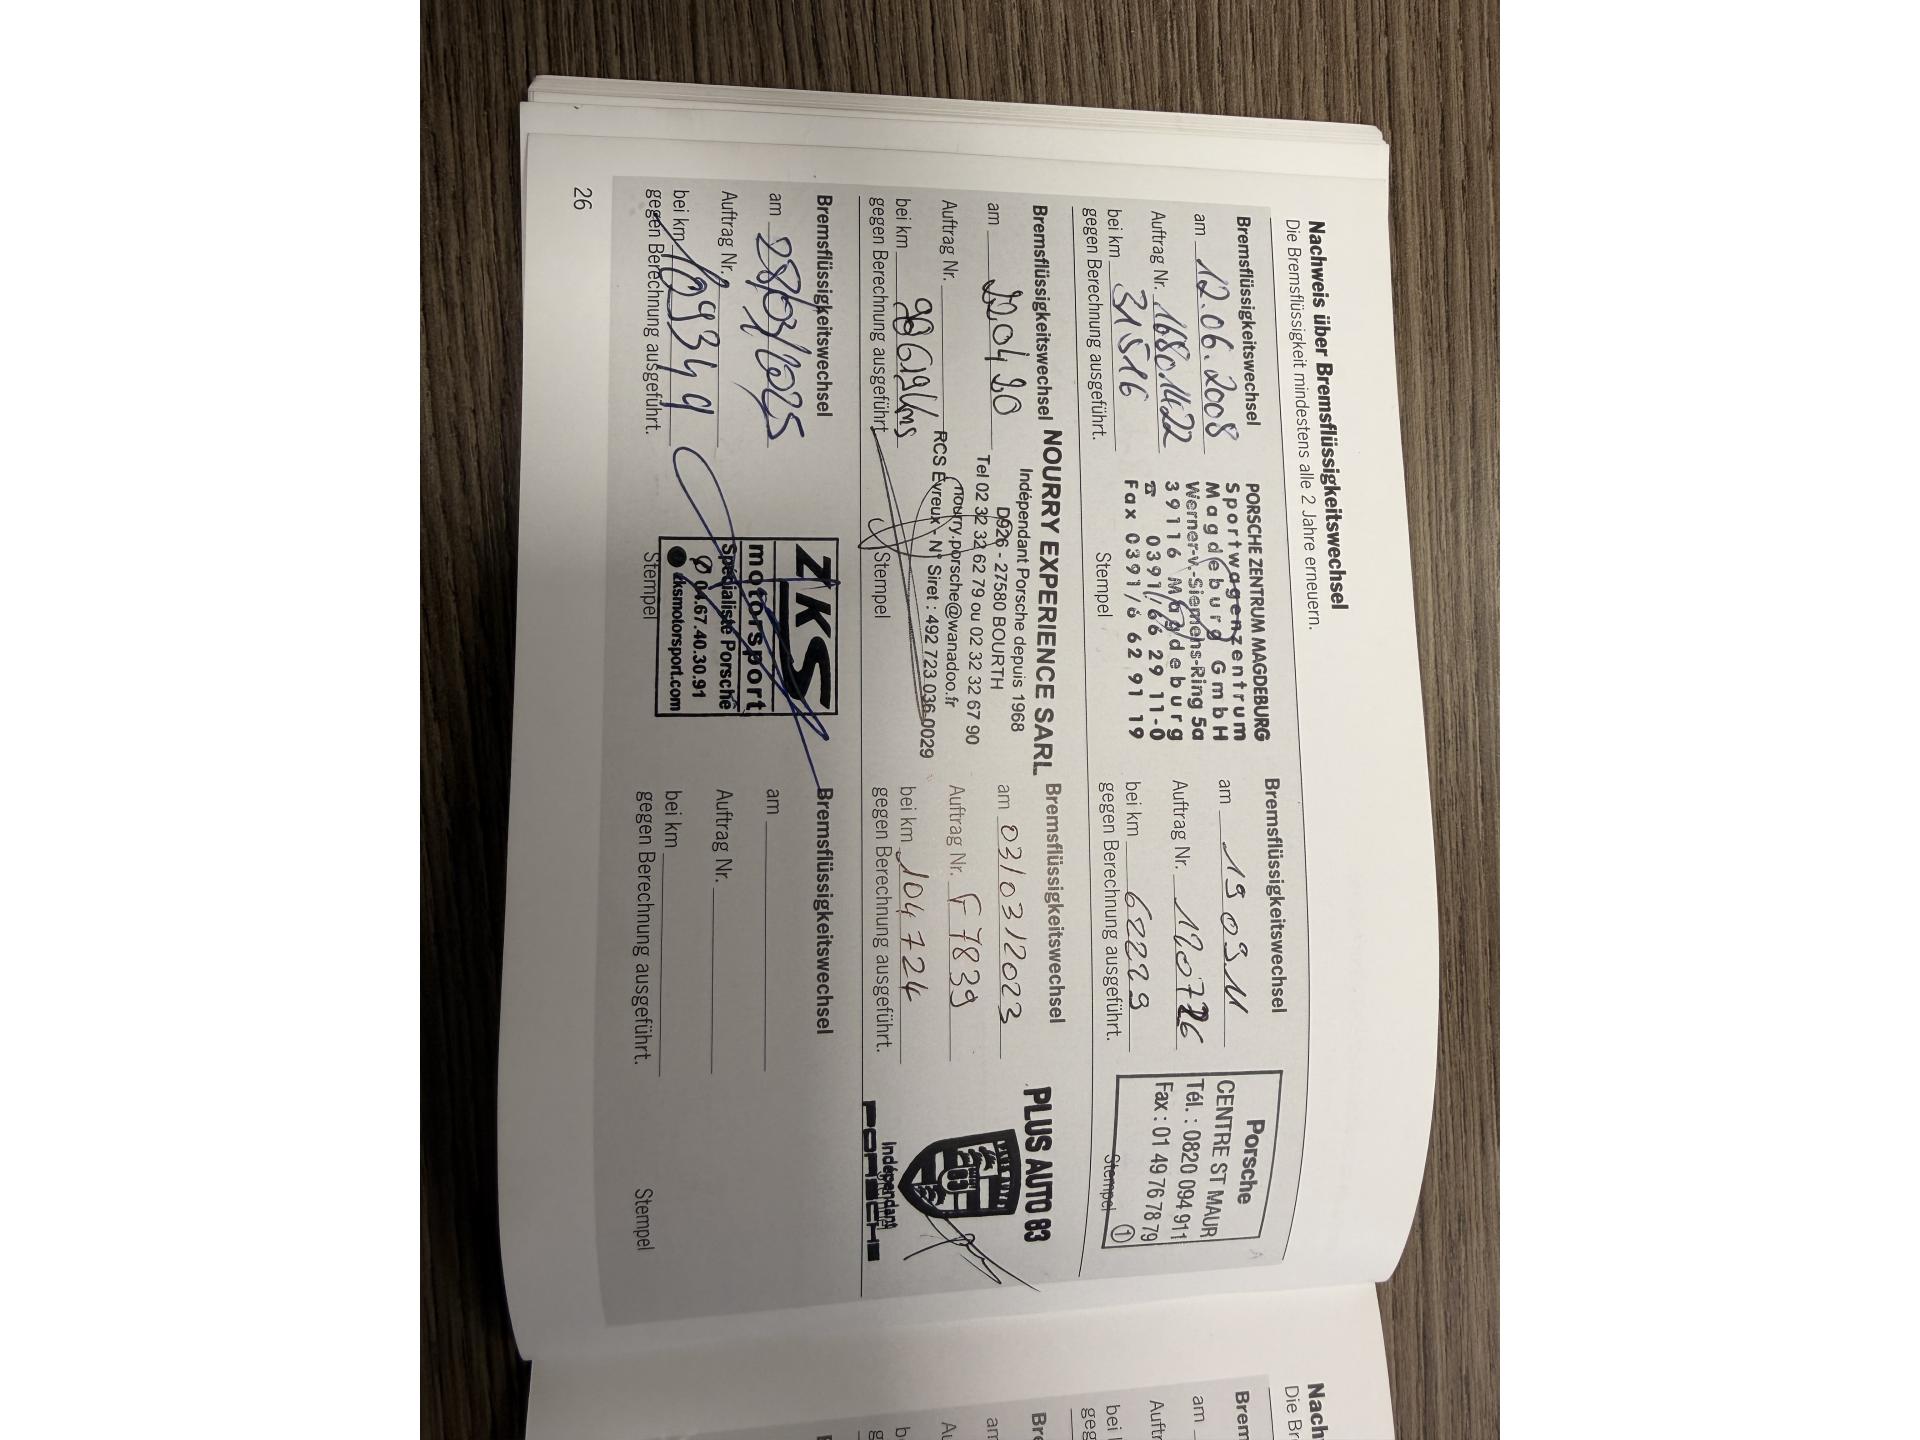 Nachweis über Bremsflüssigkeitswechsel
Die Bremsflüssigkeit mindestens alle 2 Jahre erneuern.
Bremsflüssigkeitswechsel
am 12.06.2008
Auftrag Nr. 168011422
bei km 31516
gegen Berechnung ausgeführt.
PORSCHE ZENTRUM MAGDEBURG
Sportwagenzentrum
Magdeburg GmbH
Werner-v.-Siemens-Ring 5a
39116 Magdeburg
☎ 0391/66 29 11-0
Fax 0391/6 62 91 19
Stempel
Bremsflüssigkeitswechsel
am 19 09 11
Auftrag Nr. 120726
bei km 62229
gegen Berechnung ausgeführt.
Porsche
CENTRE ST MAUR
Tél. : 0820 094 911
Fax : 01 49 76 78 79
Stempel
1
Bremsflüssigkeitswechsel
am 22 04 20
Auftrag Nr.
bei km 98619 kms
gegen Berechnung ausgeführt.
NOURRY EXPERIENCE SARL
Indépendant Porsche depuis 1968
D926 - 27580 BOURTH
Tel 02 32 32 62 79 ou 02 32 32 67 90
nourry.porsche@wanadoo.fr
RCS Evreux - N° Siret : 492 723 036 0029
Stempel
Bremsflüssigkeitswechsel
am 03/03/2023
Auftrag Nr. F 7839
bei km 104 724
gegen Berechnung ausgeführt.
PLUS AUTO 83
Indépendant
PORSCHE
Bremsflüssigkeitswechsel
am 28/03/2025
Auftrag Nr.
bei km 109349
gegen Berechnung ausgeführt.
ZKS
motorsport
Spécialiste Porsche
04.67.40.30.91
zksmotorsport.com
Stempel
Bremsflüssigkeitswechsel
am
Auftrag Nr.
bei km
gegen Berechnung ausgeführt.
Stempel
26
Nach
Die Br
Brem
am
Auftr
bei
geg
Bre
am
Au
b
g